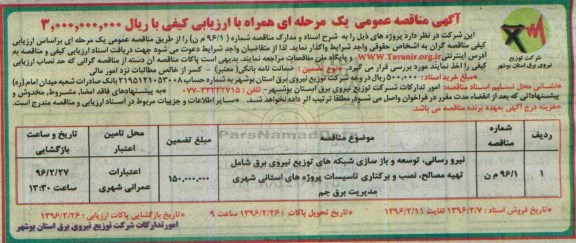 آگهی مناقصه عمومی یک مرحله ای همراه با ارزیابی کیفی با ریال ۳,۰۰۰,۰۰۰,۰۰۰
این شرکت در نظر دارد پروژه های ذیل را به شرح اسناد و مدارک مناقصه شماره (۹۶/۱ م ن) را از طریق مناقصه عمومی یک مرحله ای براساس ارزیابی
کیفی مناقصه گران به اشخاص حقوقی واجد شرایط واگذار نماید. لذا از متقاضیان واجد شرایط دعوت می شود جهت دریافت اسناد ارزیابی کیفی و مناقصه به
آدرس اینترنتی www.Tavanir.org.ir و پایگاه ملی مناقصات مراجعه نمایند. بدیهی است پاکات مناقصه آن دسته از مناقصه گرانی که حد نصاب ارزیابی
کیفی را اخذ نمایند مورد بررسی قرار می گیرد. نوع تضمین: ضمانت نامه بانکی (معتبر) - کسر از خالص مطالبات نزد امور مالی
مبلغ خرید اسناد: ۵۰۰,۰۰۰ ریال در وجه شرکت توزیع نیروی برق استان بوشهر به شماره حساب ۲۱۹۵۱۲۱۰۵۲۰۰۸ بانک صادرات شعبه میدان امام (ره)
نشانی محل تسلیم اسناد مناقصه: امور تدارکات شرکت توزیع نیروی برق استان بوشهر - تلفن: ۰۷۷-۳۳۳۲۷۷۱۵ به پیشنهادهای فاقد امضا، مشروط، مخدوش و
پیشنهاداتی که بعد از انقضاء مدت مقرر در فراخوان واصل می شوند مطلقا ترتیب اثر داده نخواهد شد. سایر اطلاعات و جزئیات مربوط در اسناد ارزیابی و مناقصه مندرج است.
هزینه درج آگهی بعهده برنده مناقصه می باشد.
شرکت توزیع
نیروی برق استان بوشهر
ردیف
شماره مناقصه
موضوع مناقصه
مبلغ تضمین
محل تامین اعتبار
تاریخ و ساعت بازگشایی
۱
۹۶/۱ م ن
نیرو رسانی، توسعه و باز سازی شبکه های توزیع نیروی برق شامل
تهیه مصالح، نصب و برکناری تاسیسات پروژه های استانی شهری
مدیریت برق جم
۱۵۰,۰۰۰,۰۰۰
اعتبارات
عمرانی شهری
۹۶/۲/۲۷
ساعت ۱۳:۳۰
تاریخ فروش اسناد: ۱۳۹۶/۲/۷ لغایت ۱۳۹۶/۲/۱۱
تاریخ تحویل پاکات: ۱۳۹۶/۲/۲۶ ساعت ۹
تاریخ بازگشایی پاکات ارزیابی: ۱۳۹۶/۲/۲۶
امور تدارکات شرکت توزیع نیروی برق استان بوشهر